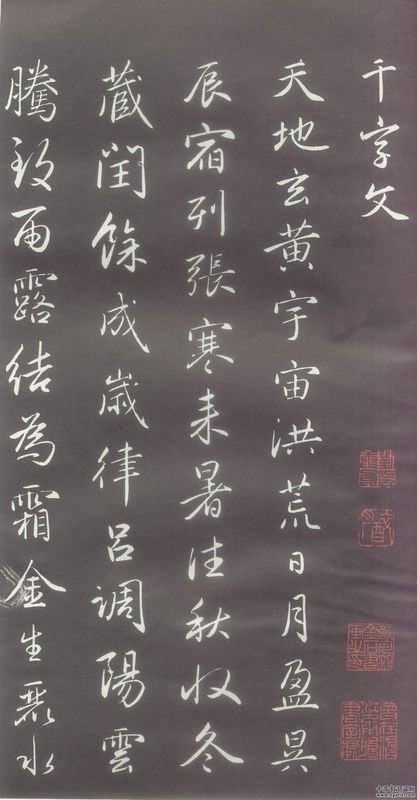 千字文
天地玄黃宇宙洪荒日月盈昃
辰宿列張寒来暑往秋收冬
蔵閏餘成嵗律吕調陽雲
騰致雨露结為霜金生麗水